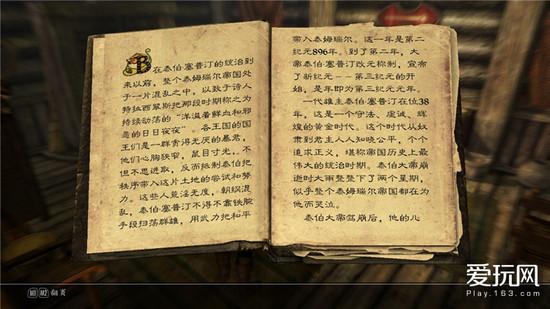 在泰伯·塞普汀的统治到
来以前，整个泰姆瑞尔帝国处
于一片混乱之中，以致于诗人
特拉西寇斯把那段时期称之为
持续动荡的“洋溢着鲜血和邪
恶的日日夜夜”。各王国的国
王们是一群贪得无厌的暴君，
他们心胸狭窄，鼠目寸光，不
但不思进取，反而抵制泰伯把
秩序带入这片土地的尝试和努
力。这些人荒淫无度，朝纲混
乱，泰伯·塞普汀不得不靠铁腕
手段扫荡群雄，用武力把和平
带入泰姆瑞尔。这一年是第二
纪元896年。到了第二年，大
帝泰伯·塞普汀改元称制，宣布
了新纪元－－第三纪元的开
始，是年即为第三纪元元年。
一代雄主泰伯·塞普汀在位38
年，这是一个守法、虔诚、辉
煌的黄金时代。这个时代从奴
隶到君主人人知晓公平，个个
追求正义，堪称帝国历史上最
伟大的统治时期。泰伯大帝崩
逝时大雨整整下了两个星期，
似乎整个泰姆瑞尔帝国都在为
他而哭泣。
泰伯大帝驾崩后，他的儿
翻页
爱玩网
Play.163.com